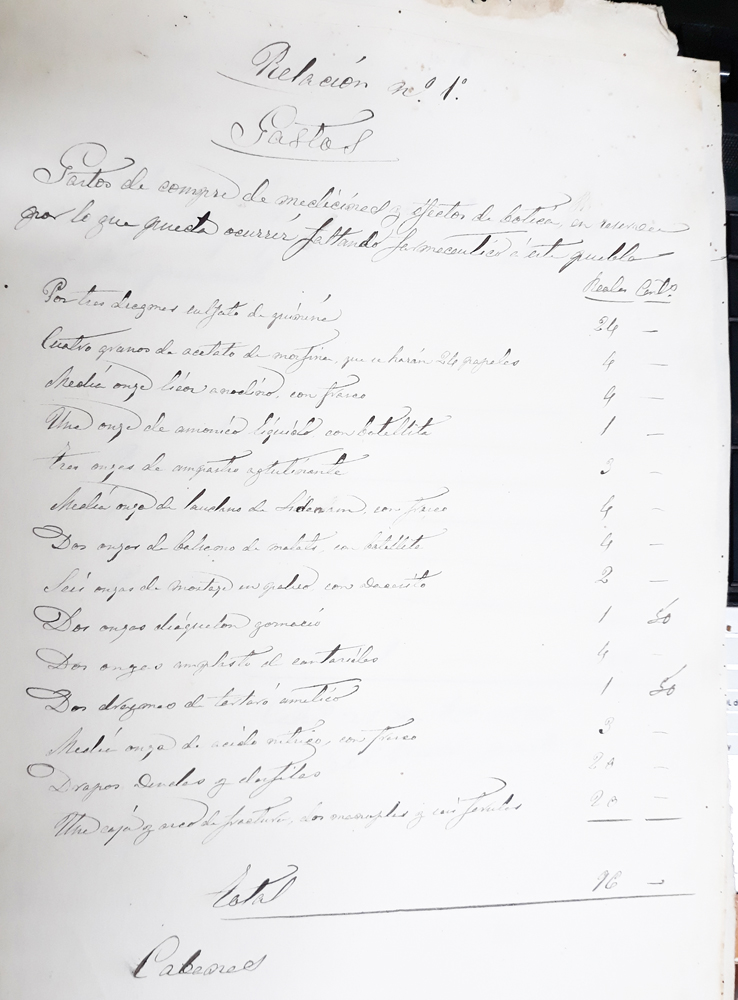 Relación nº. 1º.
Gastos
Gastos de compra de medicinas y efectos de botica, en
por lo que pueda ocurrir, faltando farmaceutico á este pueblo
Reales Cent.s
Por tres dragmas sulfato de quinina 24 —
Cuatro granos de acetato de morfina, que se harán 24 papeles 4 —
Media onza licor anodino, con frasco 4 —
Una onza de amoniaco liquido con botellita 1 —
Tres onzas de emplasto aglutinante 3 —
Media onza de laudano de Sidenam, con frasco 4 —
Dos onzas de balsamo de malats, con botellita 4 —
Seis onzas de mostaza en polvo con 2 —
Dos onzas diaquilon gomado 1 50
Dos onzas emplasto de cantaridas 4 —
Dos dragmas de tartaro emetico 1 50
Media onza de acido nitrico, con frasco 3 —
Drapos vendas y 20 —
Una caja y arco de fractura, dos y seis 20 —
Total 96 —